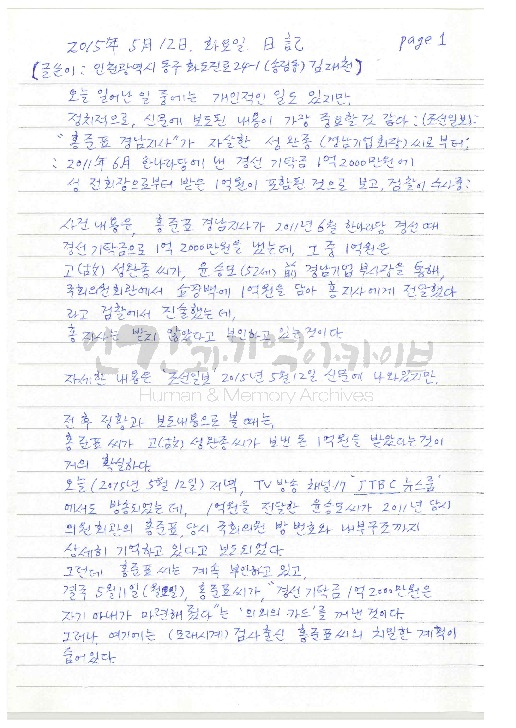 2015年 5月 12日. 화요일. 日記 page 1
(글쓴이: 인천광역시 동구 화도진로 24-1 (송림동) 김재현)
오늘 일어난 일 중에는 개인적인 일도 있지만,
정치적으로, 신문에 보도된 내용이 가장 중요할 것 같다: (조선일보):
"홍준표 경남지사"가 자살한 성완종 (경남기업회장)씨로부터;
: 2011年 6月 한나라당에 낸 경선 기탁금 1억 2000만원에
성 전회장으로부터 받은 1억원이 포함된 것으로 보고, 검찰이 수사중:
사건 내용은, 홍준표 경남지사가 2011년 6월 한나라당 경선때
경선 기탁금으로 1억 2000만원을 냈는데, 그 중 1억원은
고(故) 성완종씨가, 윤승모(52세) 前 경남기업 부사장을 통해,
국회의원회관에서 쇼핑백에 1억원을 담아 홍지사에게 전달했다
라고 검찰에서 진술했는데,
홍지사는 받지 않았다고 부인하고 있는것이다
자세한 내용은 '조선일보' 2015년 5月 12일 신문에 나와있지만,
전후 정황과 보도내용으로 볼 때는,
홍준표씨가 고(故) 성완종씨가 보낸 돈 1억원을 받았다는것이
거의 확실하다.
오늘 (2015년 5월 12일) 저녁, TV방송 채널17 "JTBC 뉴스룸"
에서도 방송되었는데, 1억원을 전달한 윤승모씨가 2011년 당시
의원회관의 홍준표, 당시 국회의원 방 번호와 내부구조까지
상세히 기억하고 있다고 보도되었다.
그런데 홍준표씨는 계속 부인하고 있고,
결국 5月 11日 (월요일), 홍준표씨가, "경선 기탁금 1억 2000만원은
자기 아내가 마련해 줬다"는 '의외의 카드'를 꺼낸 것이다.
그러나 여기에는 (모래시계) 검사출신 홍준표씨의 치밀한 계획이
숨어있다.
인간과기억아카이브
Human & Memory Archives